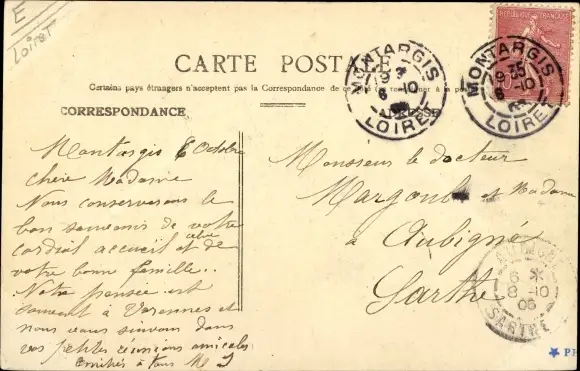 E
Loiret
REPUBLIQUE FRANÇAISE
CARTE POSTALE
Certains pays étrangers n'acceptent pas la Correspondance de ce
CORRESPONDANCE
ADRESSE
MONTARGIS
6 10
LOIRET
MONTARGIS
6 10
LOIRET
Montargis 6 Octobre
chère Madame
Nous conservons le
bon souvenir de votre
cordial accueil et de celui
votre bonne famille..
Notre pensée est
souvent à Varennes et
nous vous suivons dans
vos petites réunions amicales
amitiés à tous
Monsieur le docteur
et Madame
à Aubigné
Sarthe
AUBIGNÉ
6 *
8 10
05
SARTHE